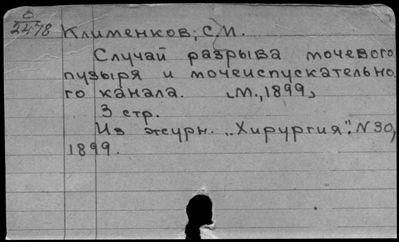 О
2478
Клименков, С.И.
Случай разрыва мочевого
пузыря и мочеиспускательно
го канала. [М., 1899]
3 стр.
Из журн. „Хирургия". N30,
1899.